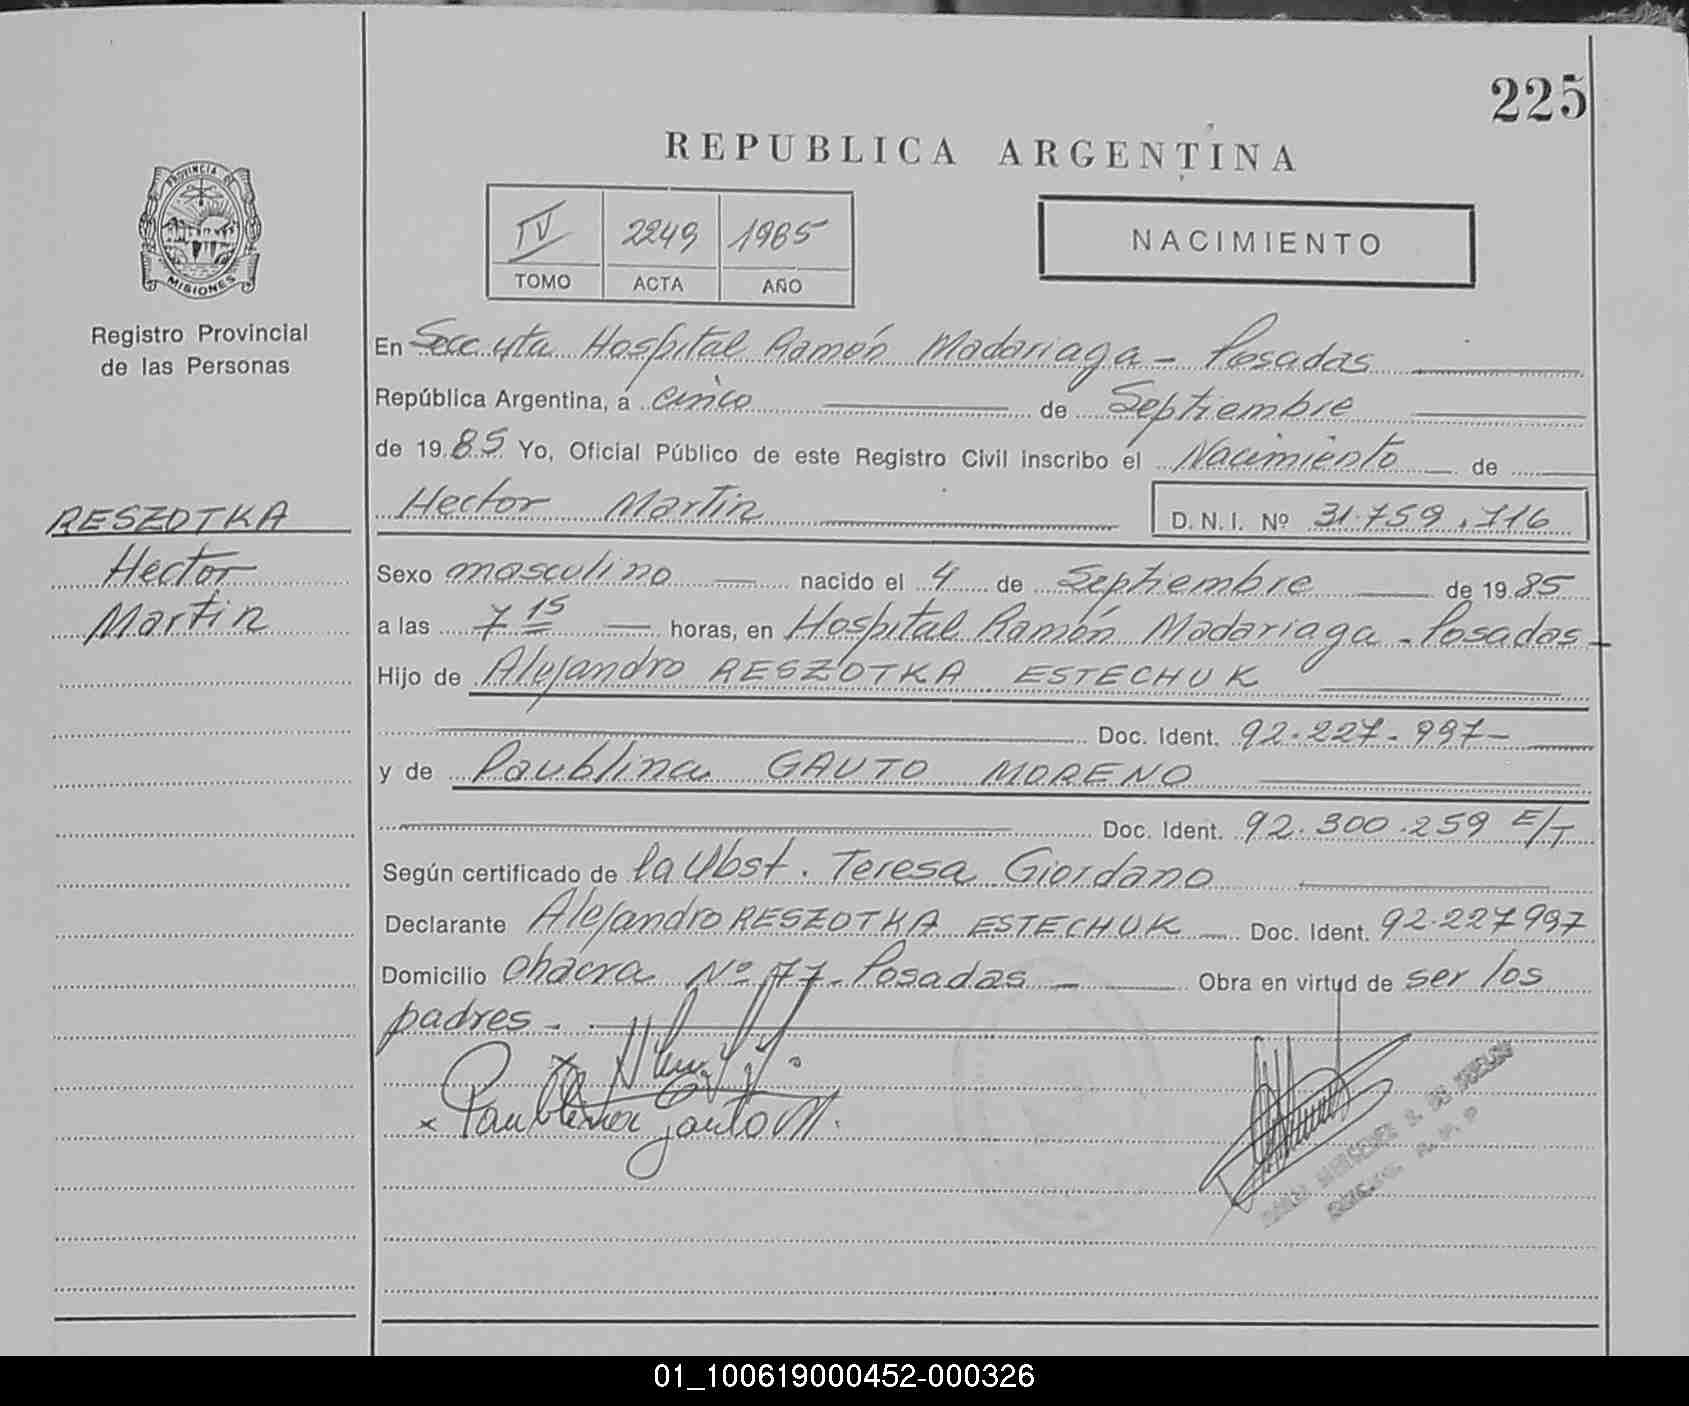 225
REPUBLICA ARGENTINA
PROVINCIA DE
MISIONES
IV 2249 1985
TOMO ACTA AÑO
NACIMIENTO
Registro Provincial
de las Personas
En Secc 4ta Hospital Ramón Madariaga - Posadas
República Argentina, a cinco de Septiembre
de 1985 Yo, Oficial Público de este Registro Civil inscribo el Nacimiento de
Hector Martin D.N.I. Nº 31.759.716
RESZOTKA
Hector
Martin
Sexo masculino nacido el 4 de Septiembre de 1985
a las 7 15 horas, en Hospital Ramón Madariaga - Posadas -
Hijo de Alejandro RESZOTKA ESTECHUK
Doc. Ident. 92.227.997-
y de Paublina GAUTO MORENO
Doc. Ident. 92.300.259 E/T
Según certificado de la Obst. Teresa Giordano
Declarante Alejandro RESZOTKA ESTECHUK Doc. Ident. 92.227997
Domicilio chacra Nº 77 - Posadas - Obra en virtud de ser los
padres -
x Paublina Gauto M.
01_100619000452-000326